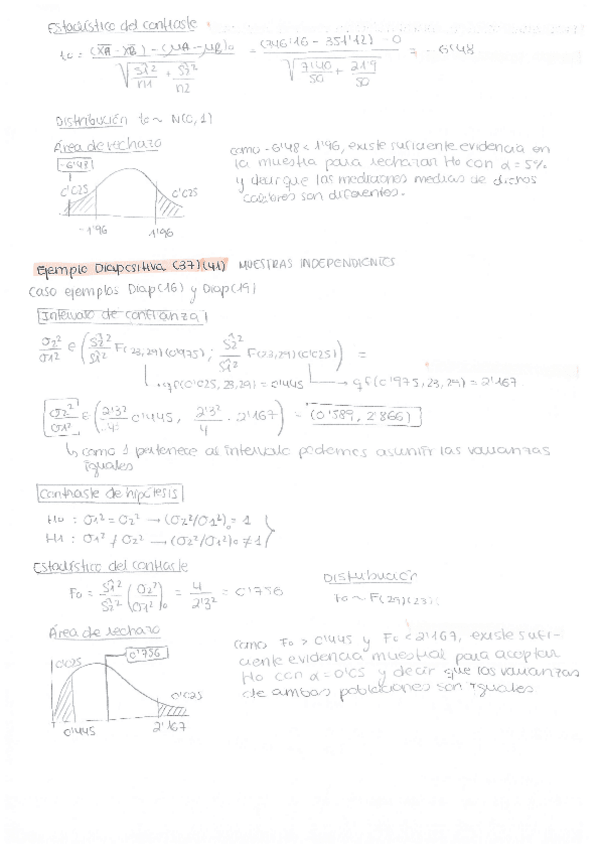 Estadístico del contraste
to = (X̄A - X̄B) - (μA - μB)o / √(Ŝ1²/n1 + Ŝ2²/n2) = (346'16 - 351'12) - 0 / √(7'40/50 + 21'9/50) = -6'48
Distribución to ~ N(0,1)
Área de rechazo
-6'48
0'025
0'025
-1'96
1'96
como -6'48 < 1'96, existe suficiente evidencia en
la muestra para rechazar Ho con α = 5%
y decir que las mediciones medias de dichos
calibres son diferentes.
Ejemplo Diapositiva (37)(41) MUESTRAS INDEPENDIENTES
Caso ejemplos Diap(16) y Diap(19)
Intervalo de confianza
σ2²/σ1² ∈ (Ŝ2²/Ŝ1² F(23,29)(0'975); Ŝ2²/Ŝ1² F(23,29)(0'025)) =
qf(0'025, 23,29) = 0'445
qf(0'975, 23, 29) = 2'167
σ2²/σ1² ∈ (2'3²/4 · 0'445, 2'3²/4 · 2'167) = (0'589, 2'866)
↳ como 1 pertenece al intervalo podemos asumir las varianzas
iguales
Contraste de hipótesis
Ho : σ1² = σ2² → (σ2²/σ1²)o = 1
H1 : σ1² ≠ σ2² → (σ2²/σ1²)o ≠ 1
Estadístico del contraste
Fo = Ŝ1²/Ŝ2² (σ2²/σ1²)o = 4/2'3² = 0'756
Distribución
Fo ~ F(29)(23)
Área de rechazo
0'756
0'025
0'025
0'445
2'167
como Fo > 0'445 y Fo < 2'167, existe sufi-
ciente evidencia muestral para aceptar
Ho con α = 0'05 y decir que las varianzas
de ambas poblaciones son iguales